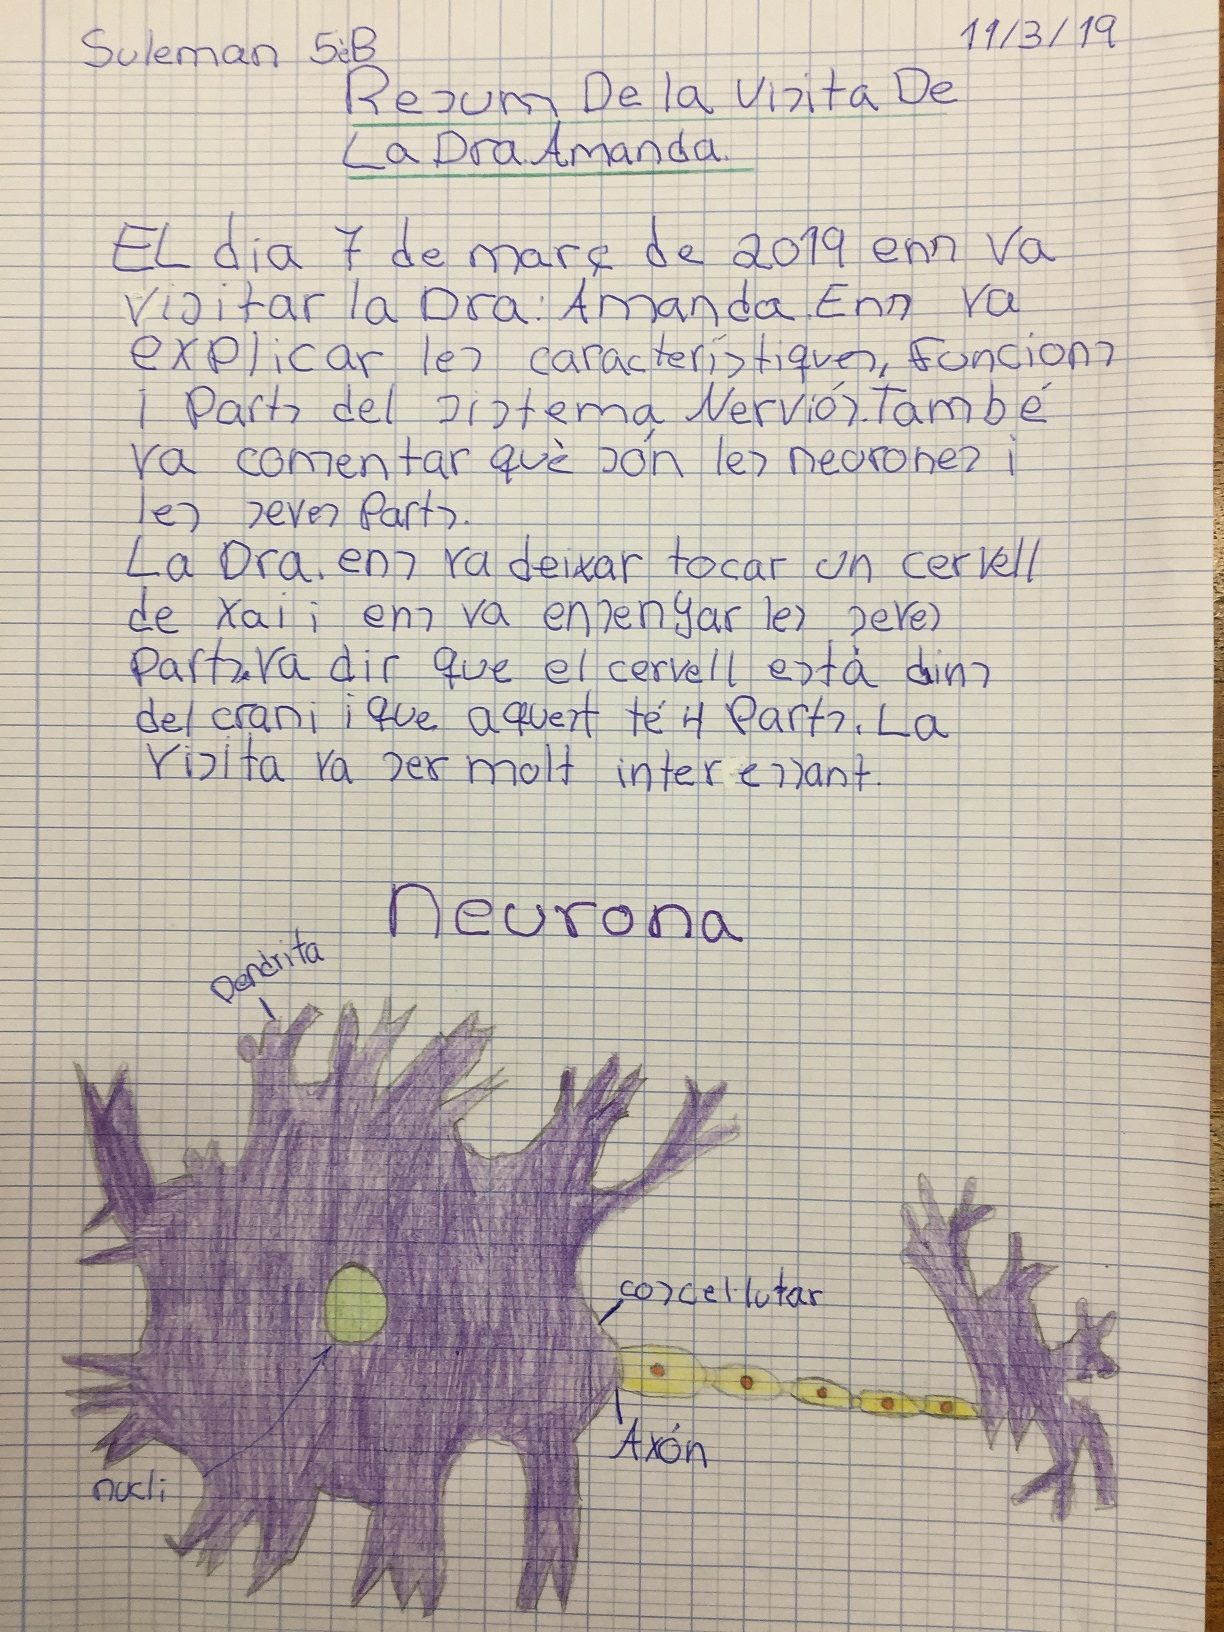 Suleman 5èB
11/3/19
Resum De la visita De
La Dra. Amanda.
EL dia 7 de març de 2019 ens va
visitar la Dra. Amanda. Ens va
explicar les característiques, Funcions
i Parts del sistema Nerviós. També
va comentar què són les neurones i
les seves Parts.
La Dra. ens va deixar tocar un cervell
de xai i ens va ensenyar les seves
Parts. Va dir que el cervell està dins
del crani i que aquest té 4 Parts. La
visita va ser molt interessant.
neurona
Dendrita
cos cel·lular
Axón
nucli